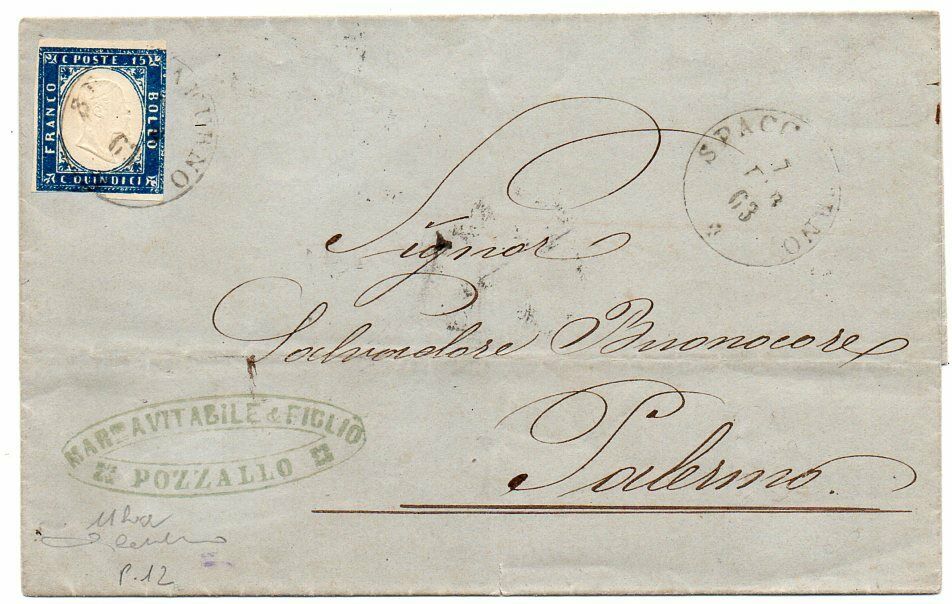 C POSTE 15
FRANCO
BOLLO
C QUINDICI
SPACC RNO
7
63
Signor
Salvadore Buonocore
Palermo.
MARNO AVITABILE & FIGLIO
POZZALLO
P. 12